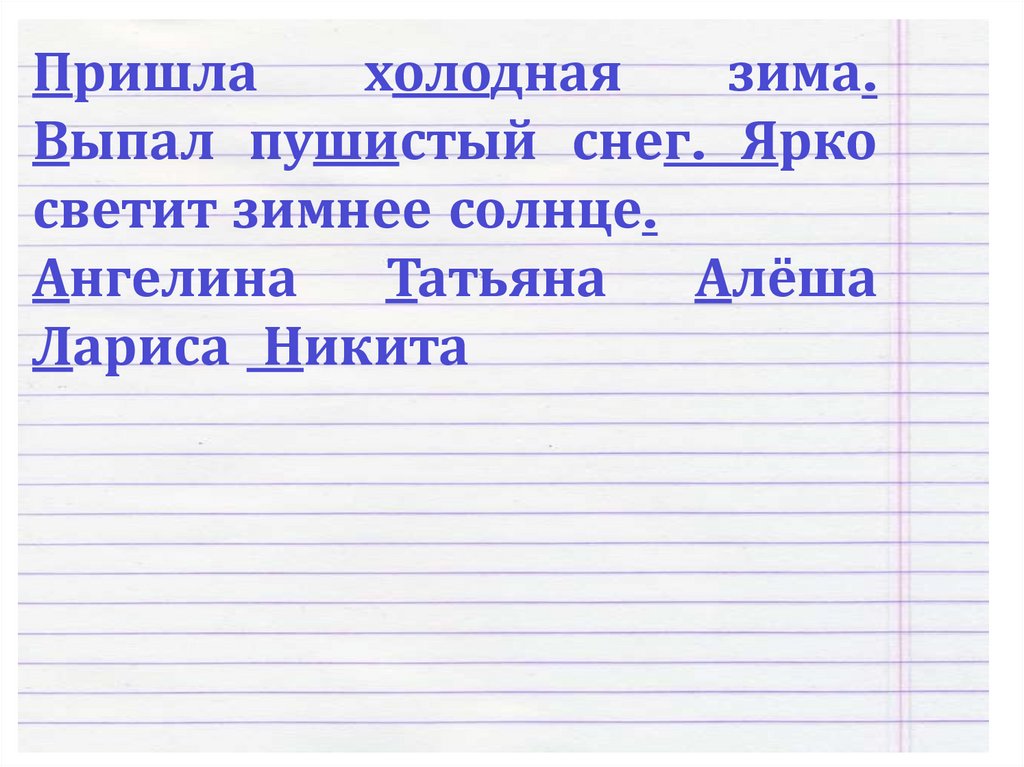 Пришла холодная зима.
Выпал пушистый снег. Ярко
светит зимнее солнце.
Ангелина Татьяна Алёша
Лариса Никита